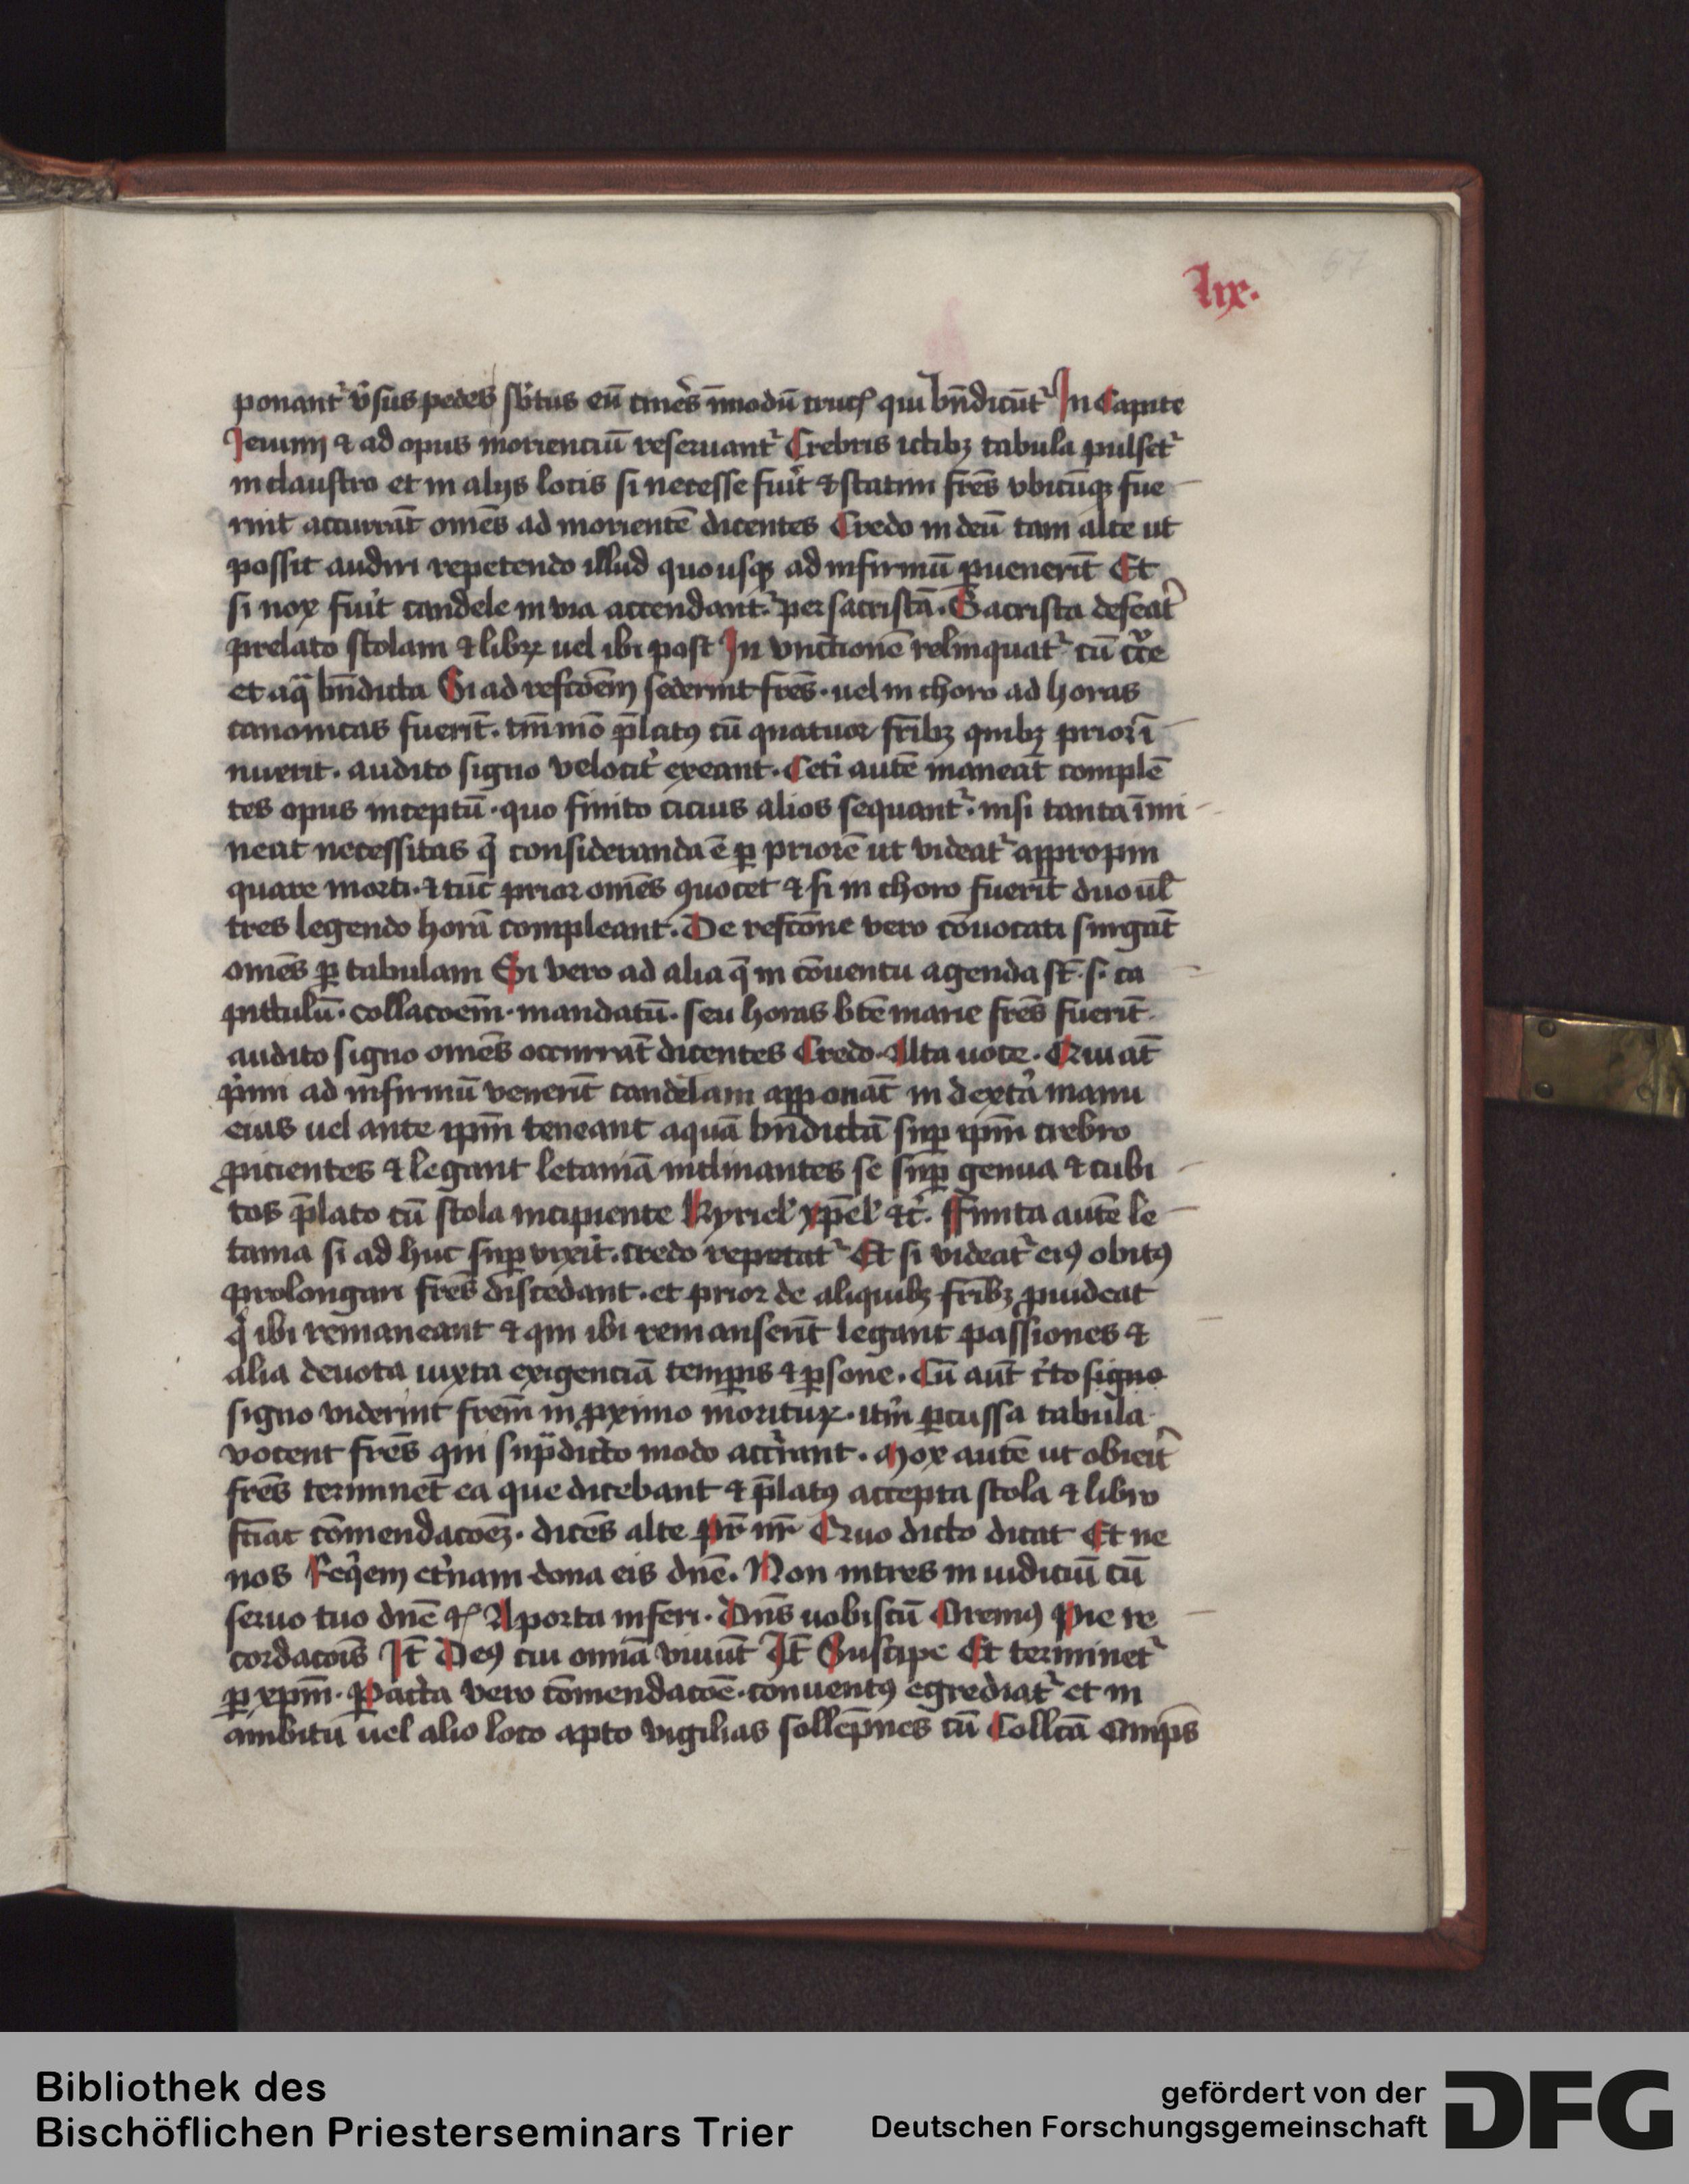 lix. 67
ponant᷑ v̉sus pedes sb̉tus eū cineꝭs in modū crucꝭ qui bn̄dicūt᷑ In Capite
Ieiunij ⁊ ad opus moriencium reseruant᷑ Crebris ictibꝫ tabula pulset᷑
in claustro et in alijs locis si necesse fuit̉ ⁊ statim fr̄es vbicūqꝫ fue
rint accurrāt om̄es ad morientē dicentes Credo in deū tam alte ut
possit audiri repetendo illud quousqꝫ ad infirmū ꝑuenerīt Et
si nox fuit̉ candele in via accendant᷑ per sacristā. Sacrista defeat᷑
prelato stolam ⁊ libꝝ uel ibi post In vnctionē relinquat᷑ cū cͬce
et aqͣ bn̄dicta Si ad refcōem sederint fr̄es. uel in choro ad horas
canonicas fuerīt. tm̄mō p̄latꝰ cū quatuor fr̄ibꝫ quibꝫ prior ī
nuerit. audito signo velocit̉ exeant. Cetī autē maneāt complē
tes opus inceptū. quo finito cicius alios sequant᷑. nisi tanta īmi
neat necessitas q̄ consideranda ē ꝑ priorē ut videat᷑ appropin
quare morti. ⁊ tūc prior om̄es ꝯuocet ⁊ si in choro fuerīt duo ul̄
tres legendo horā compleant. De refcōne vero cōuocati surgāt
om̄es ꝑ tabulam Si vero ad alia q̄ in cōuentu agenda st̄. s. ca
pitulū. collacōem. mandatū. seu horas bt̄e marie fr̄es fuerīt.
audito signo om̄es occurrāt dicentes Credo. Alta uoce. Qui at̄
pͥmi ad infirmū venerīt candelam apponāt in dextͣ manu
eius uel ante ip̄m teneant aquā bn̄dictā suꝑ ip̄m crebro
ꝓicientes ⁊ legant letaniā inclinantes se suꝑ genua ⁊ cubi
tos p̄lato cū stola incipiente Kyriel̉ xp̄el̉ ⁊c̉. Finita autē le
tania si ad huc suꝑuixit̉. credo repetat᷑ Et si videat᷑ eiꝰ obitꝰ
prolongari fr̄es discedant. et prior de aliquibꝫ fr̄ibꝫ ꝓuideat
qͥ ibi remaneant ⁊ qui ibi remanserīt legant passiones ⁊
alia deuota iuxta exigenciā temꝑis ⁊ ꝑsone. Cū aūt c̉to signo
signo viderint fr̄em in ꝓximo morituꝝ. itm̉ ꝑcussa tabula
vocent fr̄es qui supͣdicto modo accr̉ant. Mox autē ut obieit̉
fr̄es terminēt ea que dicebant ⁊ p̄latꝰ accepta stola ⁊ libro
fciat cōmendacōeꝫ. dicēs alte pr̄ nr̄ Quo dicto dicat Et ne
nos Req̉em et̉nam dona eis dn̄e. Non intres in iudiciū cū
seruo tuo dn̄e ⁊ꝭ A porta inferi. Dn̄s uobiscū Oremꝰ Pie re
cordacōis It̄ Deꝰ cui omnia viuūt It̄ Suscipe Et terminet᷑
ꝑ xp̄m. Pacta vero cōmendacōe. conuentꝰ egrediat᷑ et in
ambitu uel alio loco apto vigilias sollēpnes cū Collcā Omps̄
Bibliothek des
Bischöflichen Priesterseminars Trier
gefördert von der
Deutschen Forschungsgemeinschaft
DFG